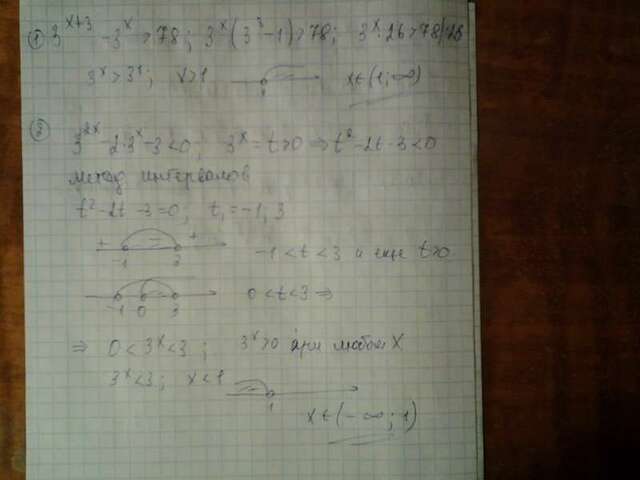 ① 3^(x+3) - 3^x > 78; 3^x(3^3 - 1) > 78; 3^x · 26 > 78 |:26
3^x > 3^1; x > 1 1 x ∈ (1; ∞)
② 3^(2x) - 2·3^x - 3 < 0; 3^x = t > 0 ⇒ t² - 2t - 3 < 0
метод интервалов
t² - 2t - 3 = 0; t₁ = -1; 3
+ - + -1 3 -1 < t < 3 и еще t > 0
-1 0 3 0 < t < 3 ⇒
⇒ 0 < 3^x < 3; 3^x > 0 при любом x
3^x < 3; x < 1 1
x ∈ (-∞; 1)